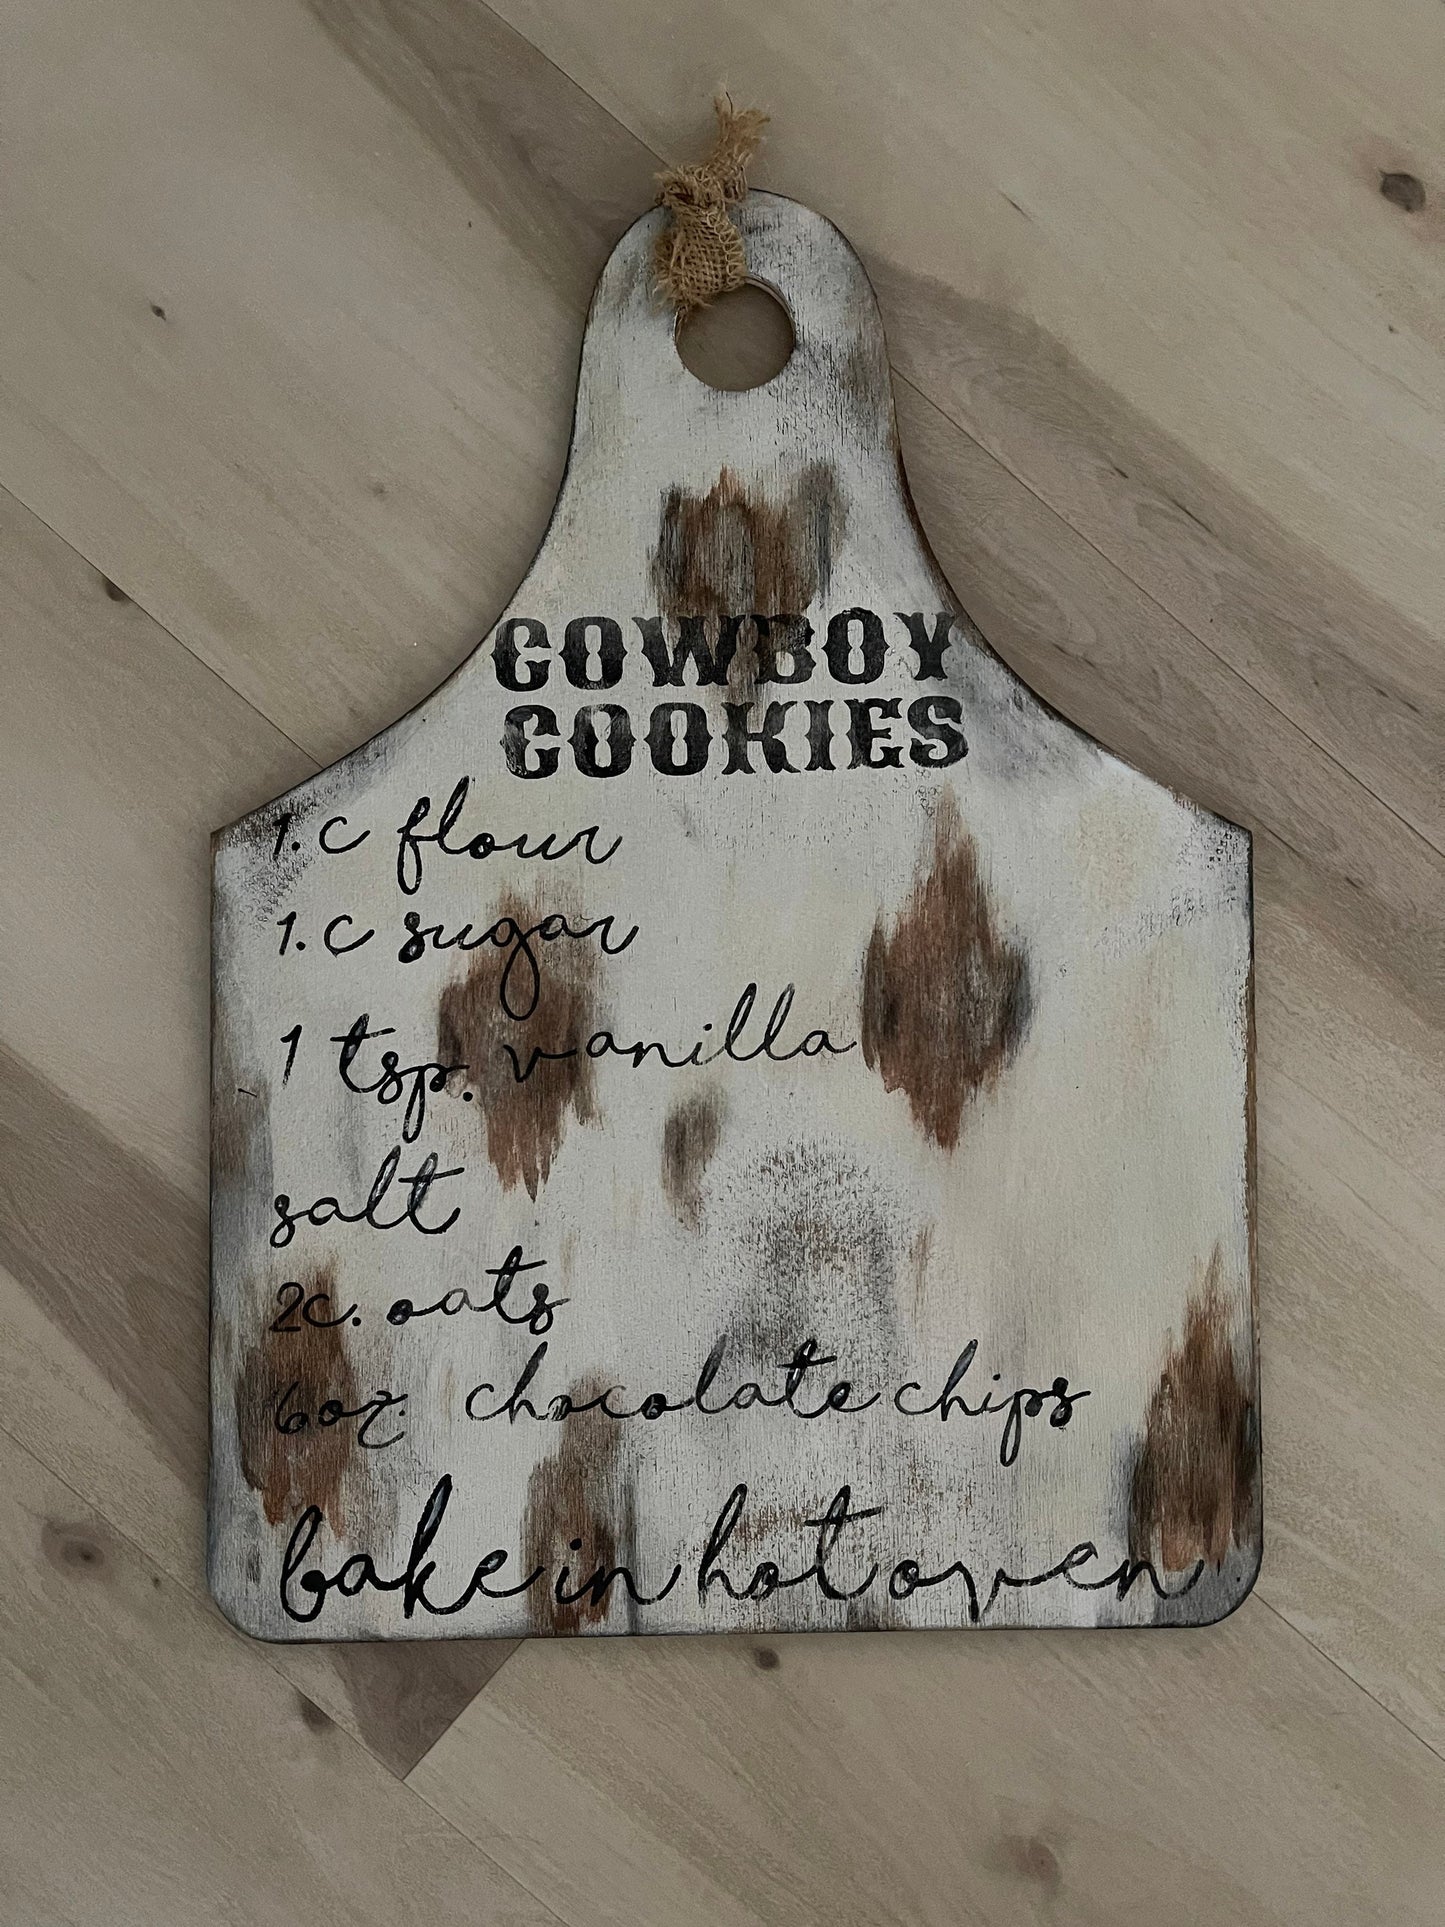 COWBOY
COOKIES
1.c flour
1.c sugar
1 tsp. vanilla
salt
2c. oats
6oz. chocolate chips
bake in hot oven